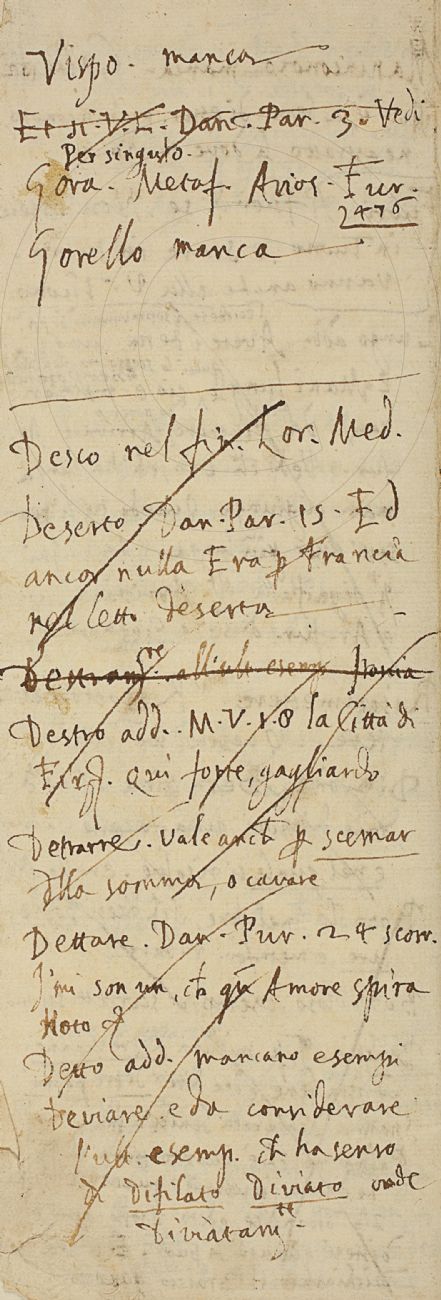 Vispo. manca
Et si. V. L. Dan. Par. 3. Vedi
Per singulo.
Gora. Metaf. Arios. Fur.
2476
Gorello manca
Desco nel fin. Lor. Med.
Deserto. Dan. Par. 15. Ed
ancor nulla Era p Francia
nel letto deserta
all'ult esemp
Destro add. M. V. 1. 8 la Città di
Fir. Qui forte, gagliardo
Detrarre. Vale anch p scemar
dlla somma, o cavare
Dettare. Dan. Pur. 24 scorr.
I' mi son un, ch qn Amore spira
Noto &
Detto add. mancano esempi
Deviare e da considerare
l'ult. esemp. ch ha senso
di Difilato Diviato onde
Diviatamtt